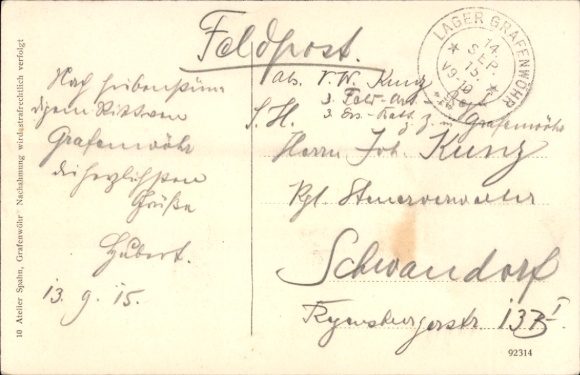 Feldpost.
LAGER GRAFENWÖHR
14.
SEP.
15.
V9-10
Abs. V.W. Kunz
3. Feld-Art.
3. Ers.-Batt.
S.H. z. Z. Grafenwöhr
Herrn Joh. Kunz
Kgl. Steuerverwalter
Schwandorf
Regensburgerstr. 13 I
Nach
Grafenwöhr
die herzlichsten
Grüße
Hubert.
13. 9. 15.
10 Atelier Spahn, Grafenwöhr Nachahmung wird strafrechtlich verfolgt
92314